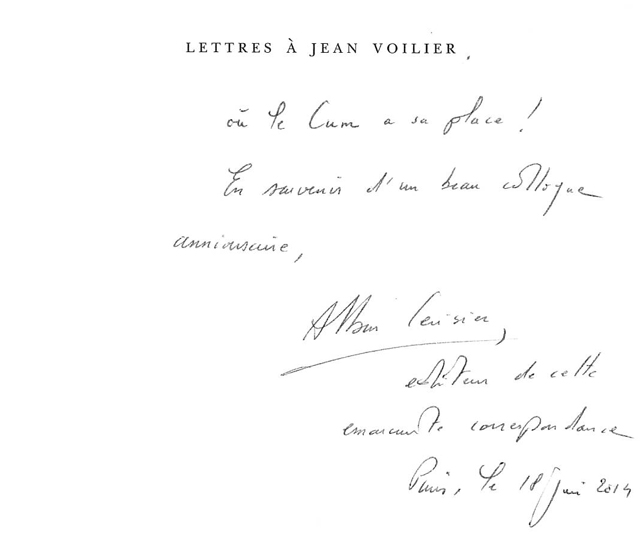 LETTRES À JEAN VOILIER,
où le Cum a sa place !
En souvenir d'un beau colloque
anniversaire,
Alban Cerisier,
éditeur de cette
émouvante correspondance
Paris, le 18 juin 2014